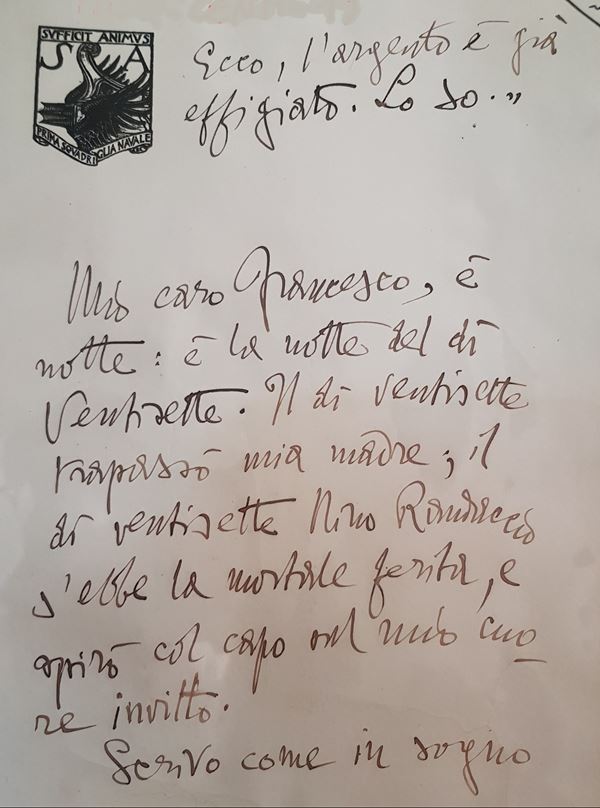 SVFFICIT ANIMVS
S A
PRIMA SQVADRIGLIA NAVALE
Ecco, l'argento è già
effigiato. Lo so."
Mio caro Francesco, è
notte: è la notte del dì
Ventisette. Il dì ventisette
trapassò mia madre; il
dì ventisette Nino Randaccio
s'ebbe la mortale ferita, e
spirò col capo sul mio cuo
re invitto.
Scrivo come in sogno